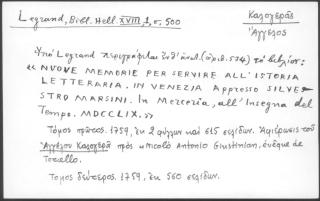 Legrand, Bibl. Hell. XVIII 1, σ. 500
Καλογερᾶς
Ἄγγελος
Ὑπὸ Legrand περιγράφεται ὑπ' ἀριθ. (ἀριθ. 534) τὸ βιβλίον:
« NUOVE MEMORIE PER SERVIRE ALL'ISTORIA
LETTERARIA. IN VENEZIA Appresso SILVE-
STRO MARSINI. In Merceria, all'Insegna del
Tempo. MDCCLIX. »
Τόμος πρῶτος. 1759, ἐκ 2 φύλλων καὶ 615 σελίδων. Ἀφιέρωσις τοῦ
Ἀγγέλου Καλογερᾶ πρὸς «Nicolò Antonio Giustinian, évêque de
Torcello.
Τόμος δεύτερος. 1759, ἐκ 560 σελίδων.